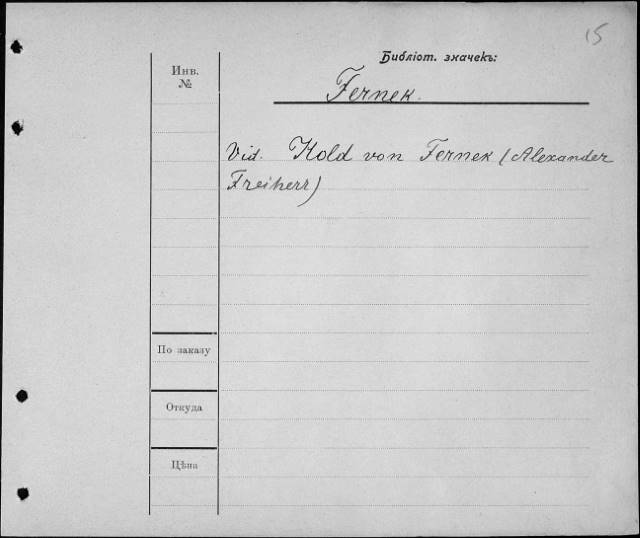 15
Библіот. значекъ:
Инв.
№
Fernek.
Vid. Hold von Fernek (Alexander
Freiherr)
По заказу
Откуда
Цѣна